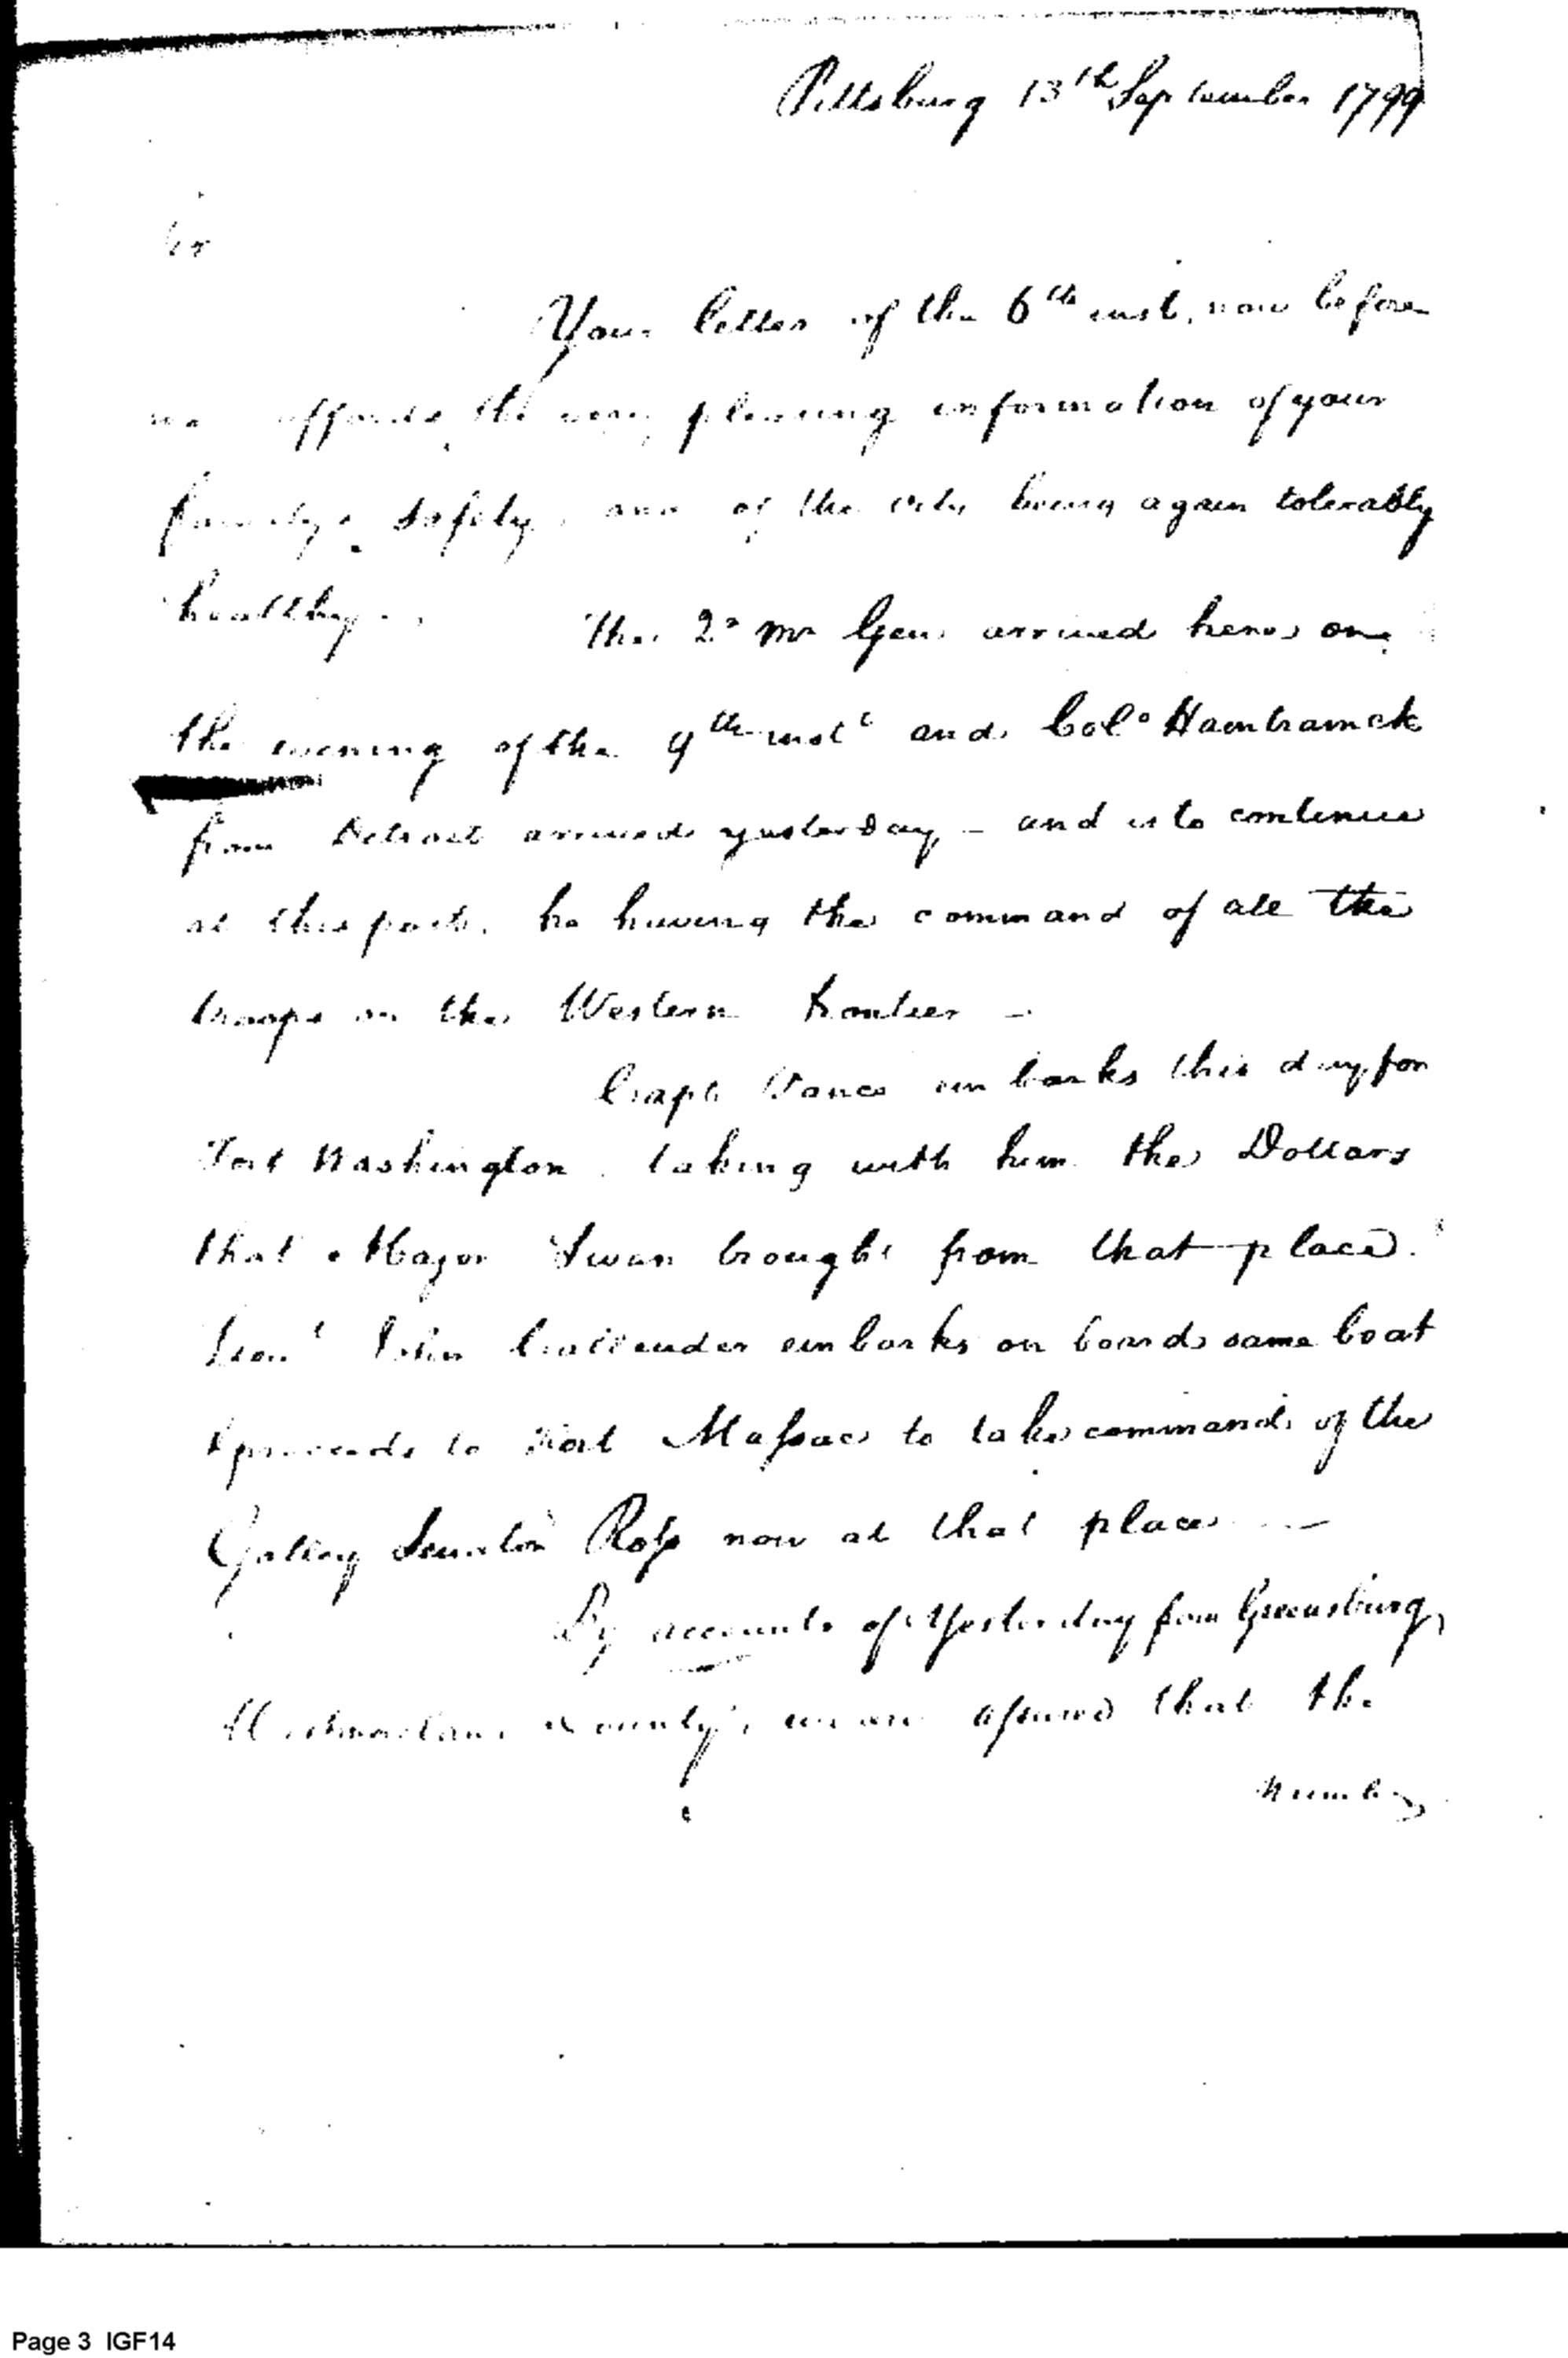 Pittsburg 13th September 1799
Sir
Your letter of the 6th inst. now before
me affords the very pleasing information of your
family's safety, and of the city being again tolerably
healthy.
The Qr Mr Genl arrived here on
the evening of the 9th inst and Colo Hamtramck
from Detroit arrived yesterday - and is to continue
at this post, he having the command of all the
troops on the Western frontier -
Capt Vance embarks this day for
Fort Washington taking with him the Dollars
that Major Swan brought from that place.
Lieut John Callender embarks on board same boat
& proceeds to Fort Massac to take command of the
Galley Senator Ross now at that place —
By accounts of Yesterday from Greensburg,
Westmoreland County, we are assured that the
number
Page 3 IGF14